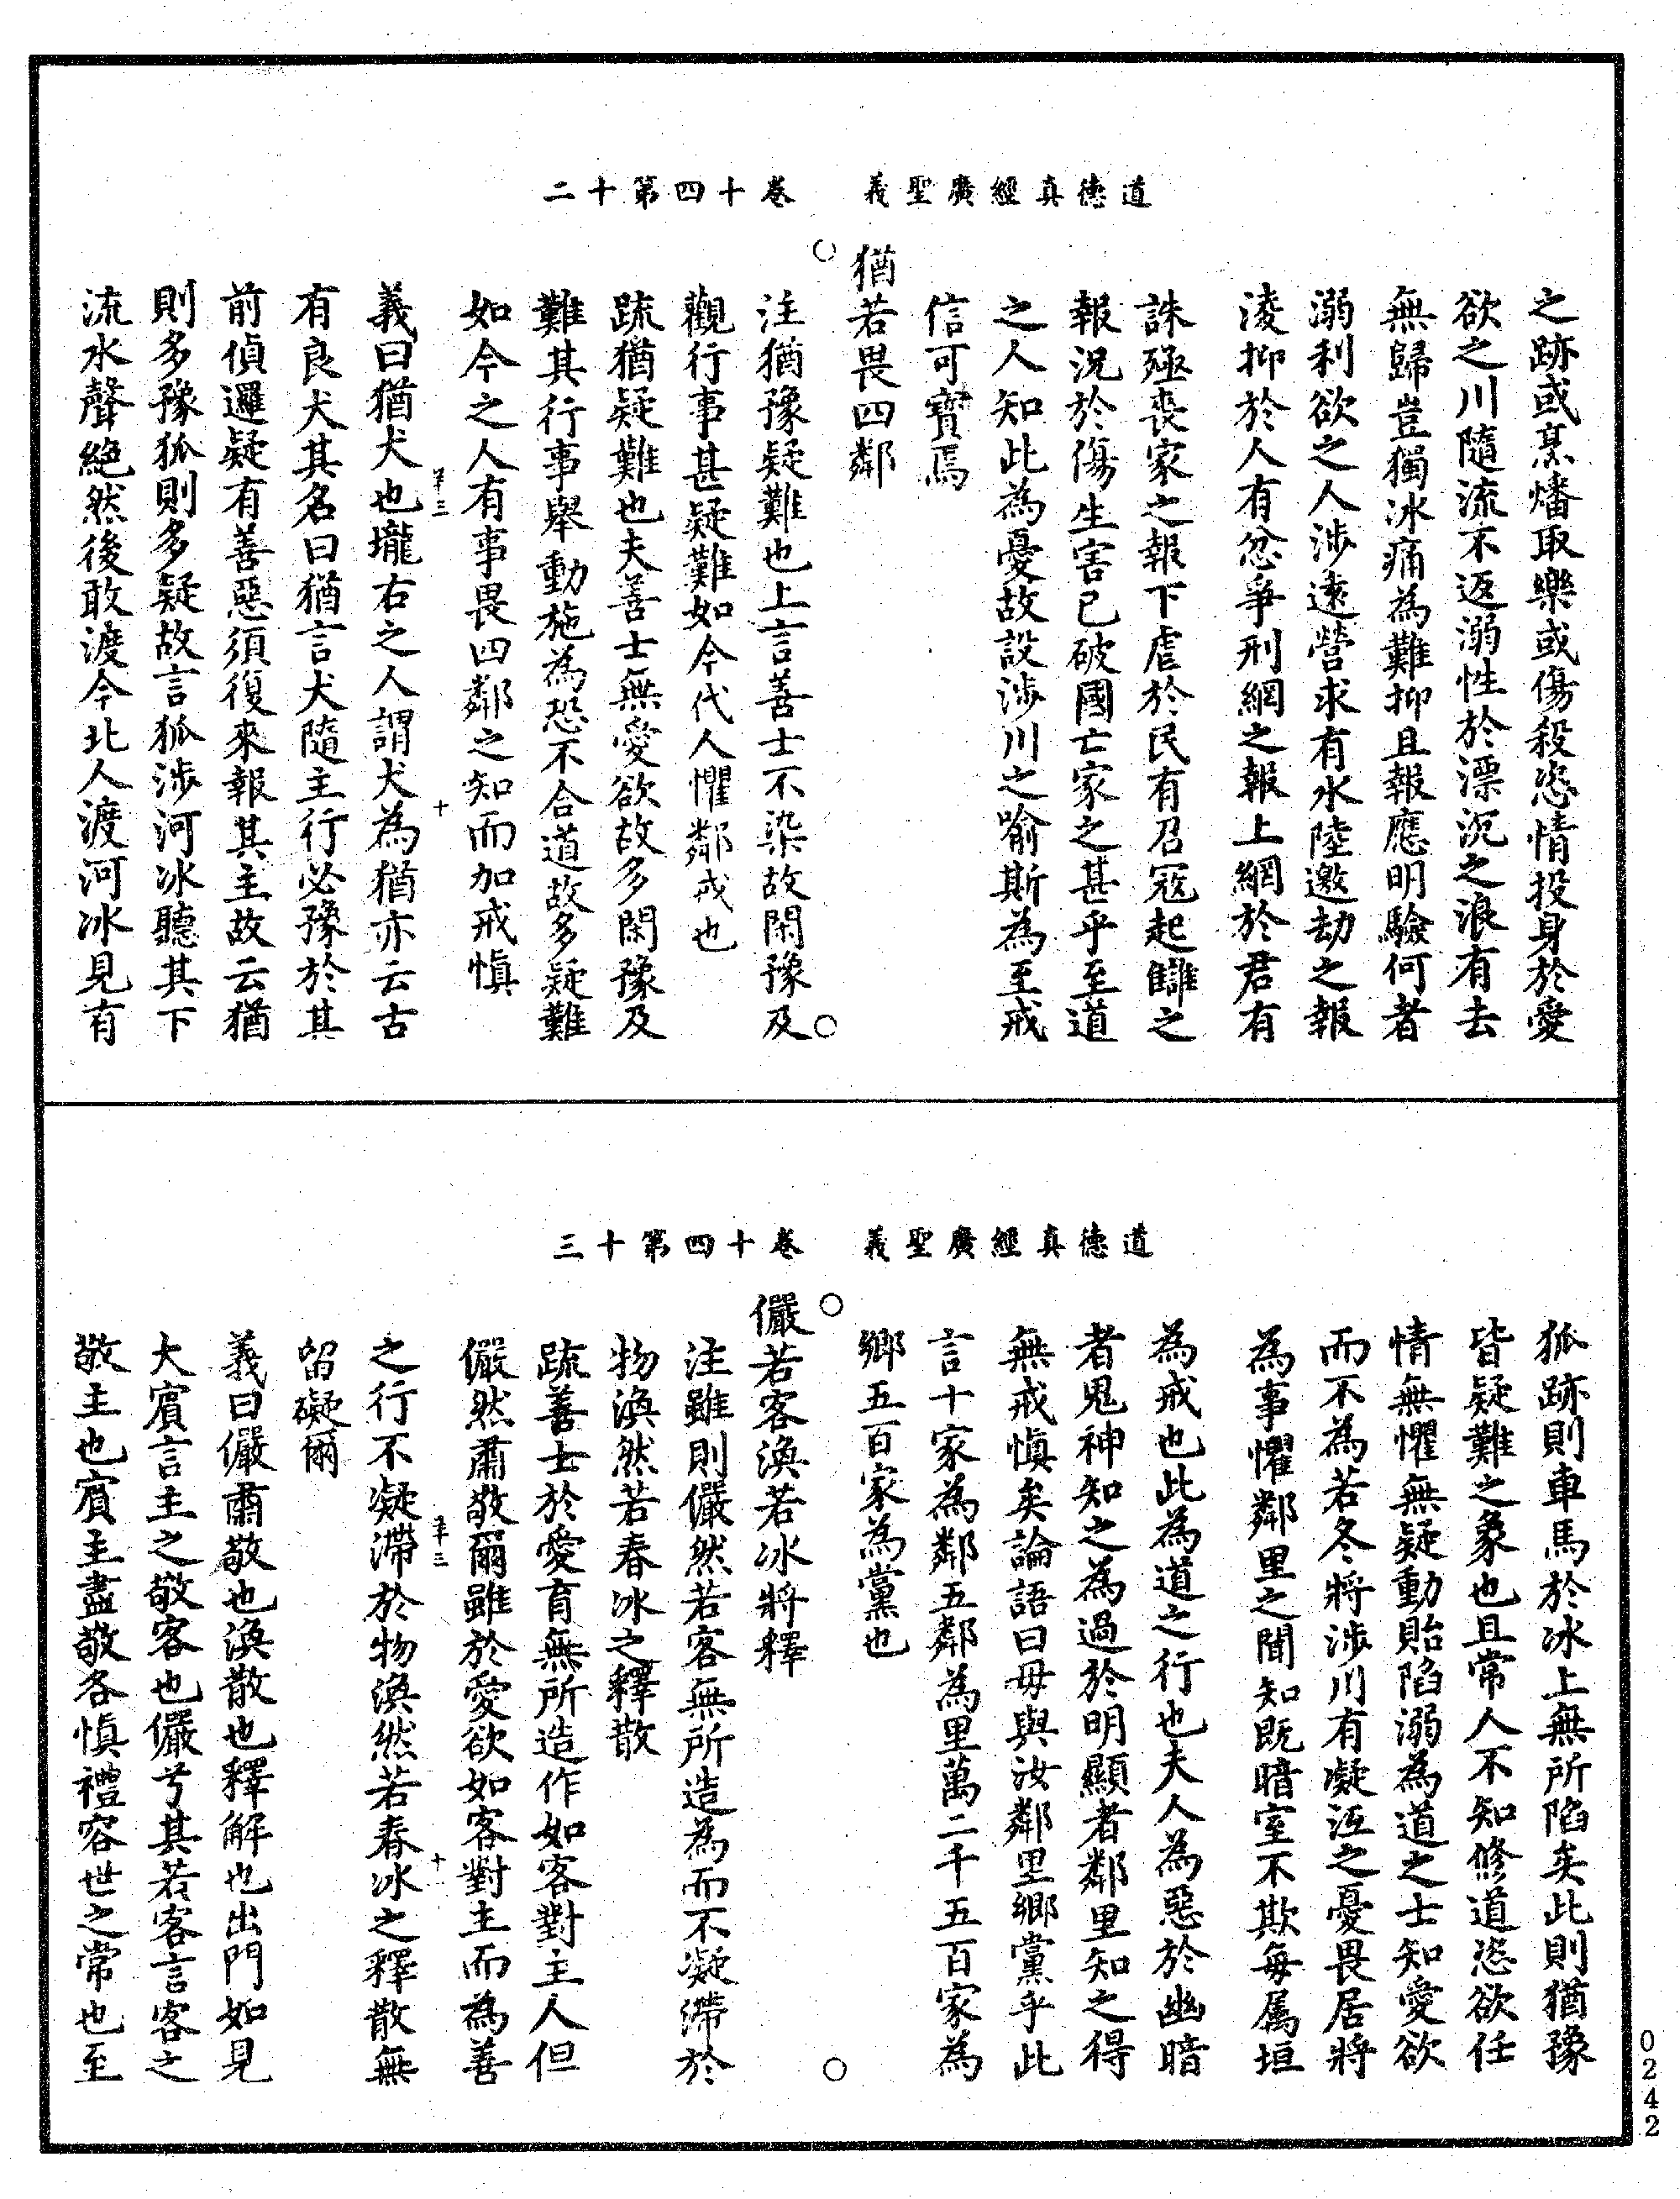 道德真經廣聖義　卷十四第十二
之跡或烹燔取樂或傷殺恣情投身於愛
欲之川隨流不返溺性於漂沉之浪有去
無歸豈獨冰痛為難抑且報應明驗何者
溺利欲之人涉遠營求有水陸邀劫之報
淩抑於人有忿爭刑網之報上網於君有
誅殛喪家之報下虐於民有召寇起讎之
報況於傷生害已破國亡家之甚乎至道
之人知此為憂故設涉川之喻斯為至戒
信可寶焉
猶若畏四鄰
注猶豫疑難也上言善士不染故閑豫及
觀行事甚疑難如今代人懼鄰戒也
疏猶疑難也夫善士無愛欲故多閑豫及
難其行事舉動施為恐不合道故多疑難
如今之人有事畏四鄰之知而加戒慎
羊三　十
義曰猶犬也壠右之人謂犬為猶亦云古
有良犬其名曰猶言犬隨主行必豫於其
前偵邏疑有善惡須復來報其主故云猶
則多豫狐則多疑故言狐涉河冰聽其下
流水聲絕然後敢渡今北人渡河冰見有
道德真經廣聖義　卷十四第十三
狐跡則車馬於冰上無所陷矣此則猶豫
皆疑難之象也且常人不知修道恣欲任
情無懼無疑動貽陷溺為道之士知愛欲
而不為若冬將涉川有凝沍之憂畏居將
為事懼鄰里之聞知既暗室不欺每屬垣
為戒也此為道之行也夫人為惡於幽暗
者鬼神知之為過於明顯者鄰里知之得
無戒慎矣論語曰毋與汝鄰里鄉黨乎此
言十家為鄰五鄰為里萬二千五百家為
鄉五百家為黨也
儼若客渙若冰將釋
注雖則儼然若客無所造為而不凝滯於
物渙然若春冰之釋散
疏善士於愛育無所造作如客對主人但
儼然肅敬爾雖於愛欲如客對主而為善
羊三　十
之行不凝滯於物渙然若春冰之釋散無
留礙爾
義曰儼肅敬也渙散也釋解也出門如見
大賓言主之敬客也儼兮其若客言客之
敬主也賓主盡敬各慎禮容世之常也至
0242